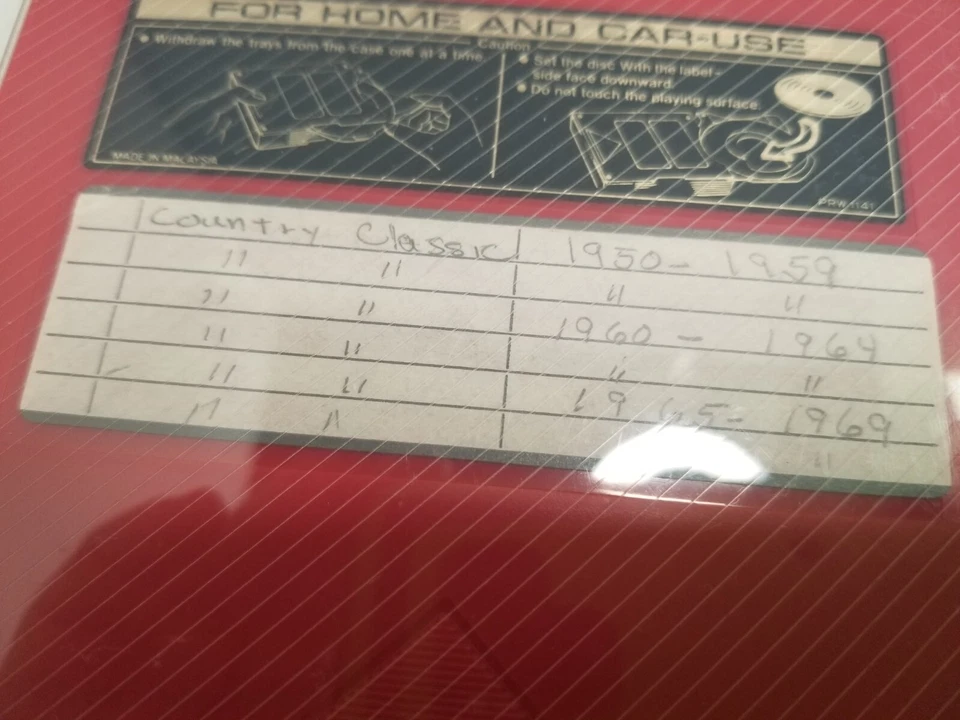 FOR HOME AND CAR-USE
Caution
● Withdraw the trays from the case one at a time.
● Set the disc with the label-
side face downward.
● Do not touch the playing surface.
MADE IN MALAYSIA
PRW 1141
Country Classic 1950- 1959
" " " "
" " 1960 - 1964
" " " "
" " 1965- 1969
" " "